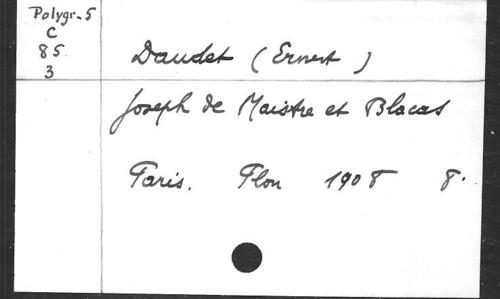 Polygr. 5
C
85
3
Daudet (Ernest)
Joseph de Maistre et Blacas
Paris. Plon 1908 8.